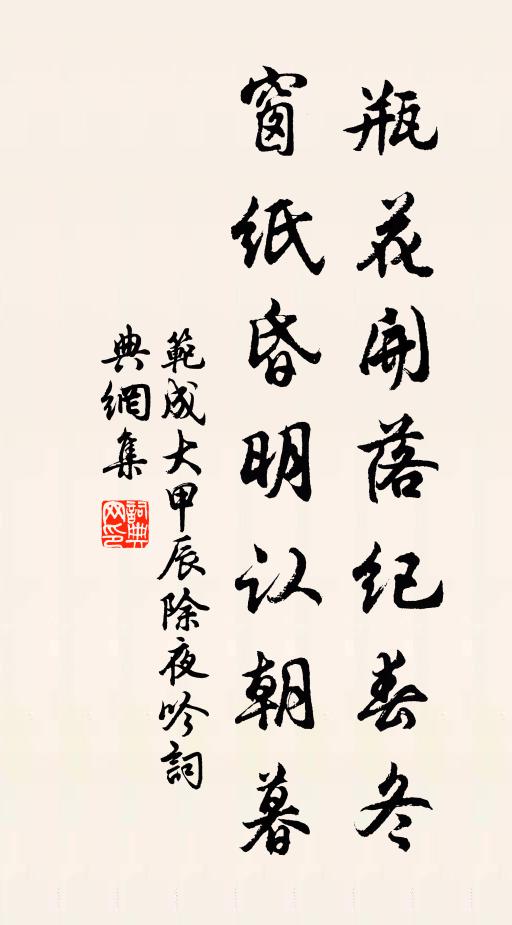 瓶花開落纪春冬
窗纸昏明认朝暮
範成大甲辰除夜吟詞
典網集
詞典
网印